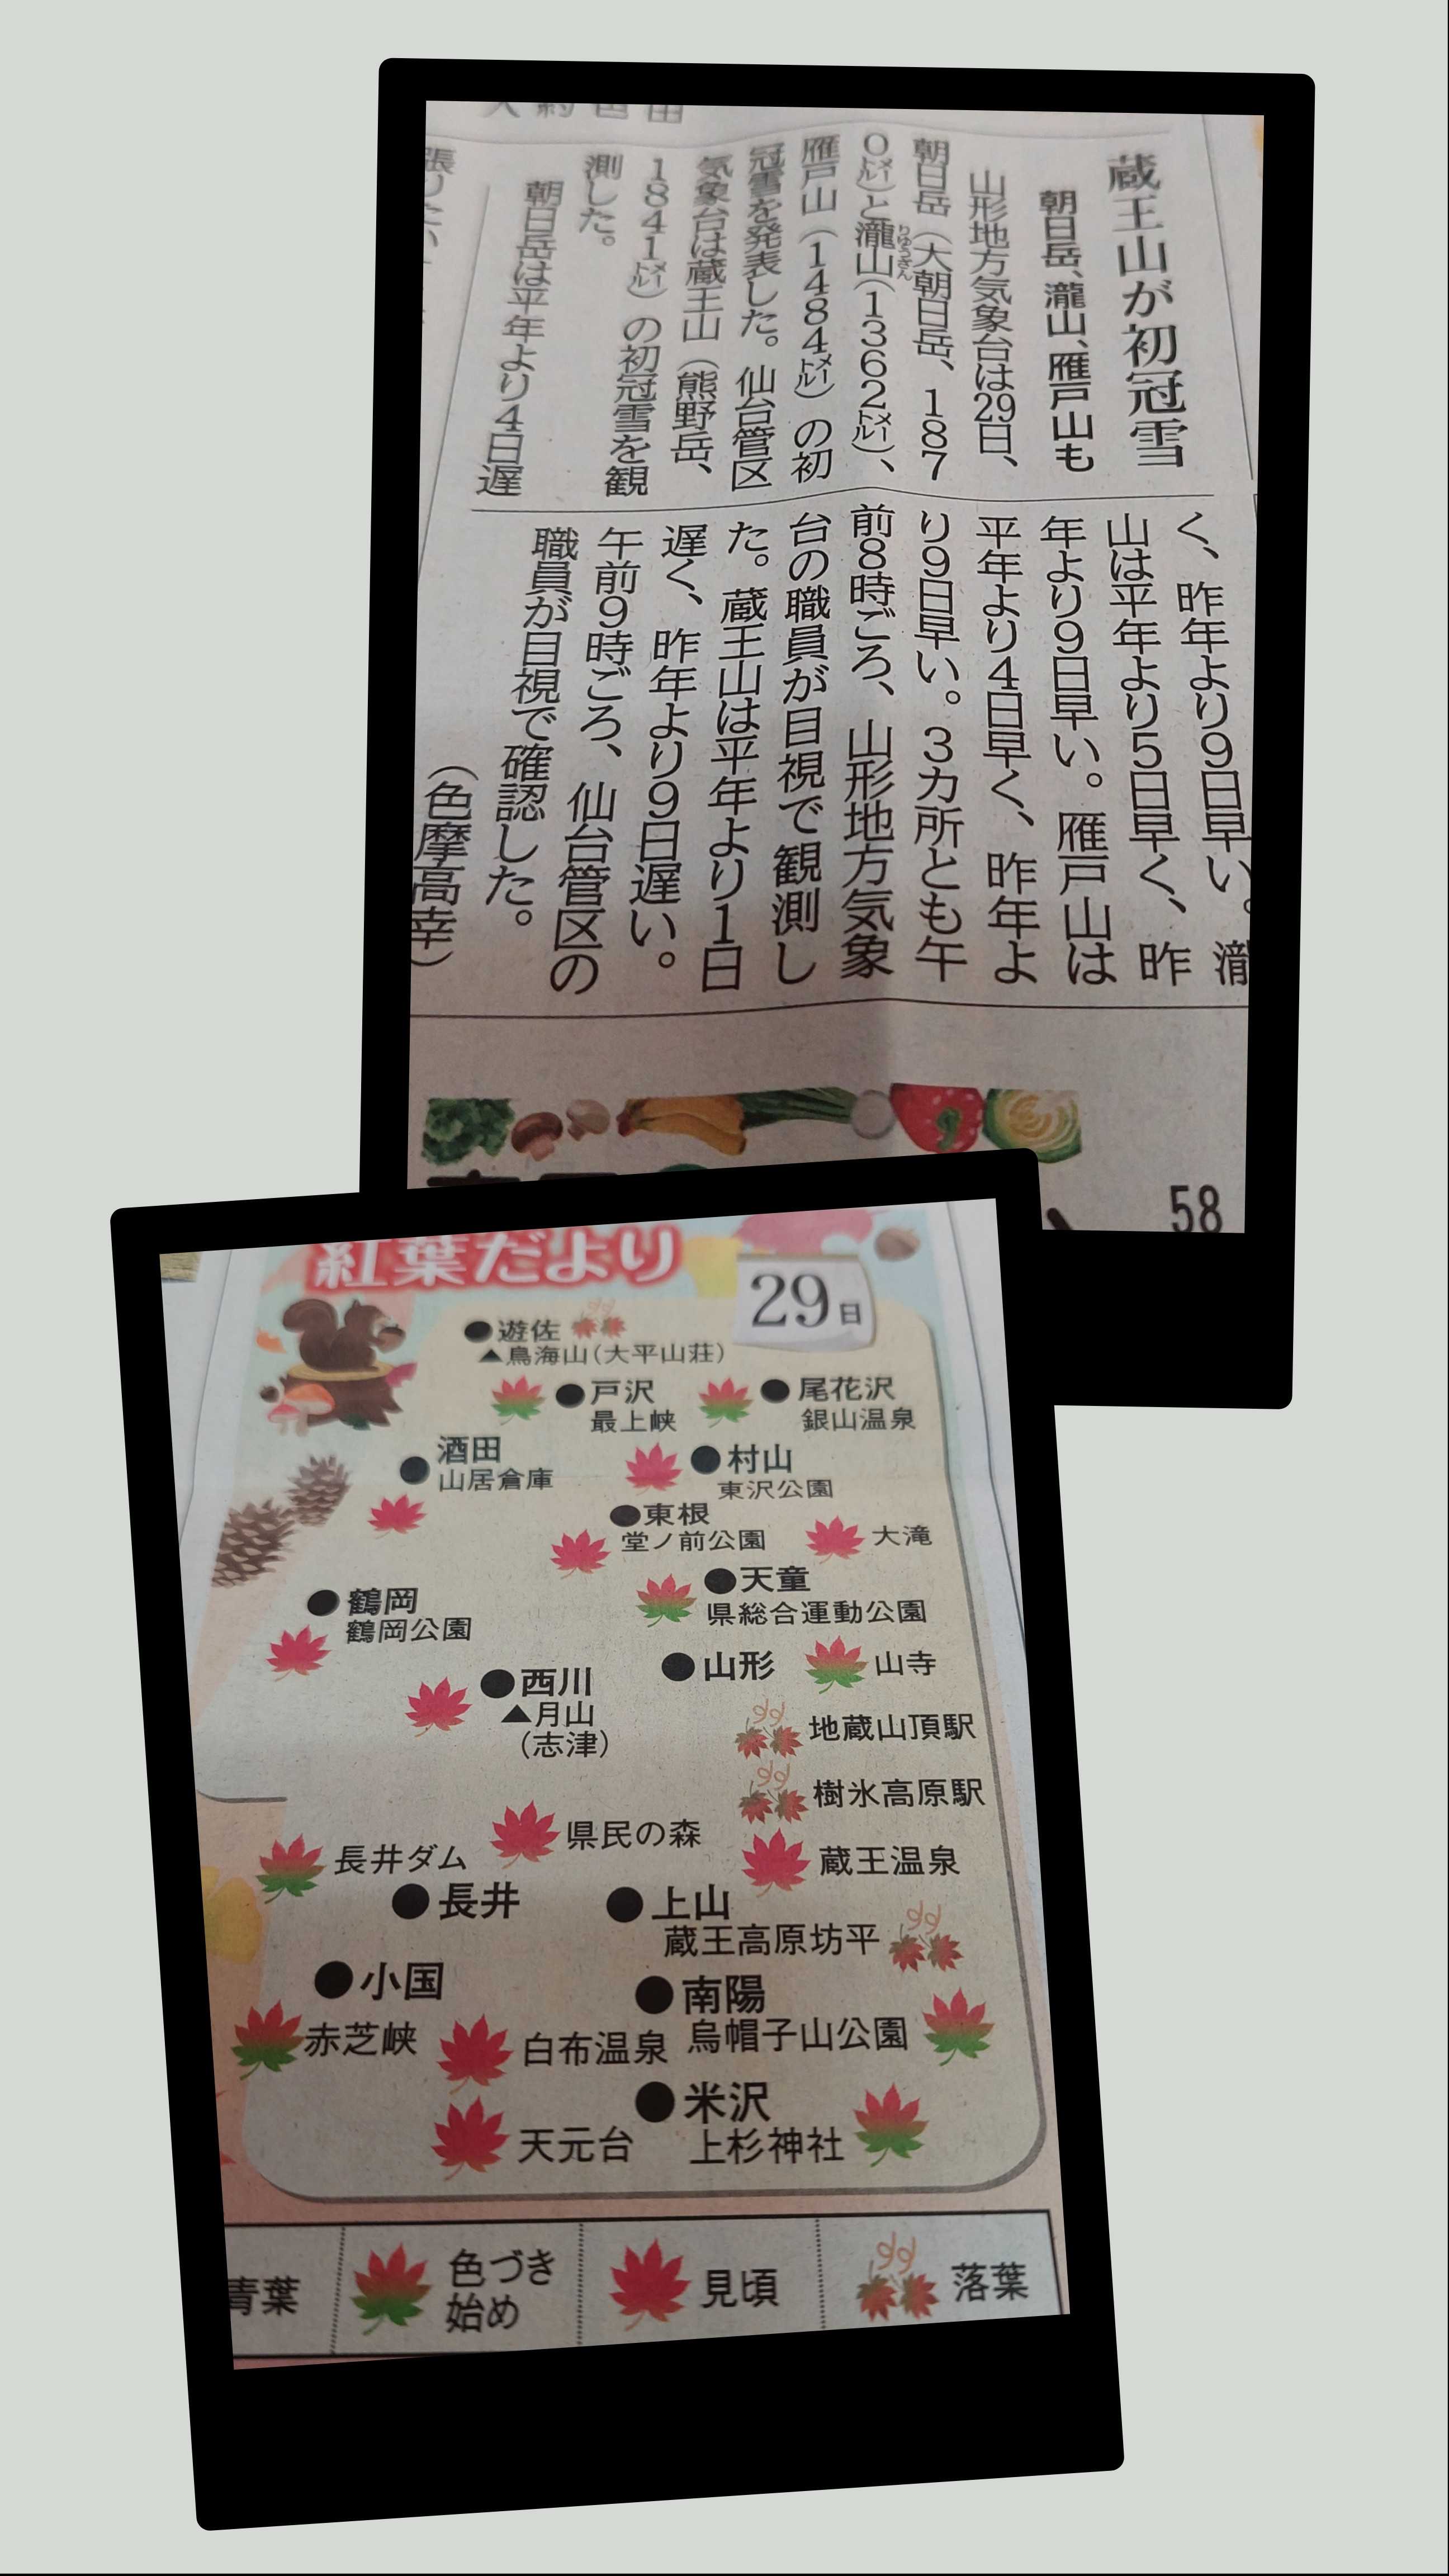 蔵王山が初冠雪
朝日岳、瀧山、雁戸山も
山形地方気象台は29日、
朝日岳（大朝日岳、187
0メートル）と瀧山（1362メートル）、
りゅうざん
雁戸山（1484メートル）の初
冠雪を発表した。仙台管区
気象台は蔵王山（熊野岳、
1841メートル）の初冠雪を観
測した。
朝日岳は平年より4日遅
く、昨年より9日早い。瀧
山は平年より5日早く、昨
年より9日早い。雁戸山は
平年より4日早く、昨年よ
り9日早い。3カ所とも午
前8時ごろ、山形地方気象
台の職員が目視で観測し
た。蔵王山は平年より1日
遅く、昨年より9日遅い。
午前9時ごろ、仙台管区の
職員が目視で確認した。
（色摩高幸）
58
紅葉だより
29日
●遊佐
▲鳥海山（大平山荘）
●戸沢
最上峡
●尾花沢
銀山温泉
●酒田
山居倉庫
●村山
東沢公園
●東根
堂ノ前公園
大滝
●天童
県総合運動公園
●鶴岡
鶴岡公園
●山形
山寺
●西川
▲月山
（志津）
地蔵山頂駅
樹氷高原駅
県民の森
蔵王温泉
長井ダム
●長井
●上山
蔵王高原坊平
●小国
赤芝峡
●南陽
烏帽子山公園
白布温泉
●米沢
上杉神社
天元台
青葉
色づき
始め
見頃
落葉